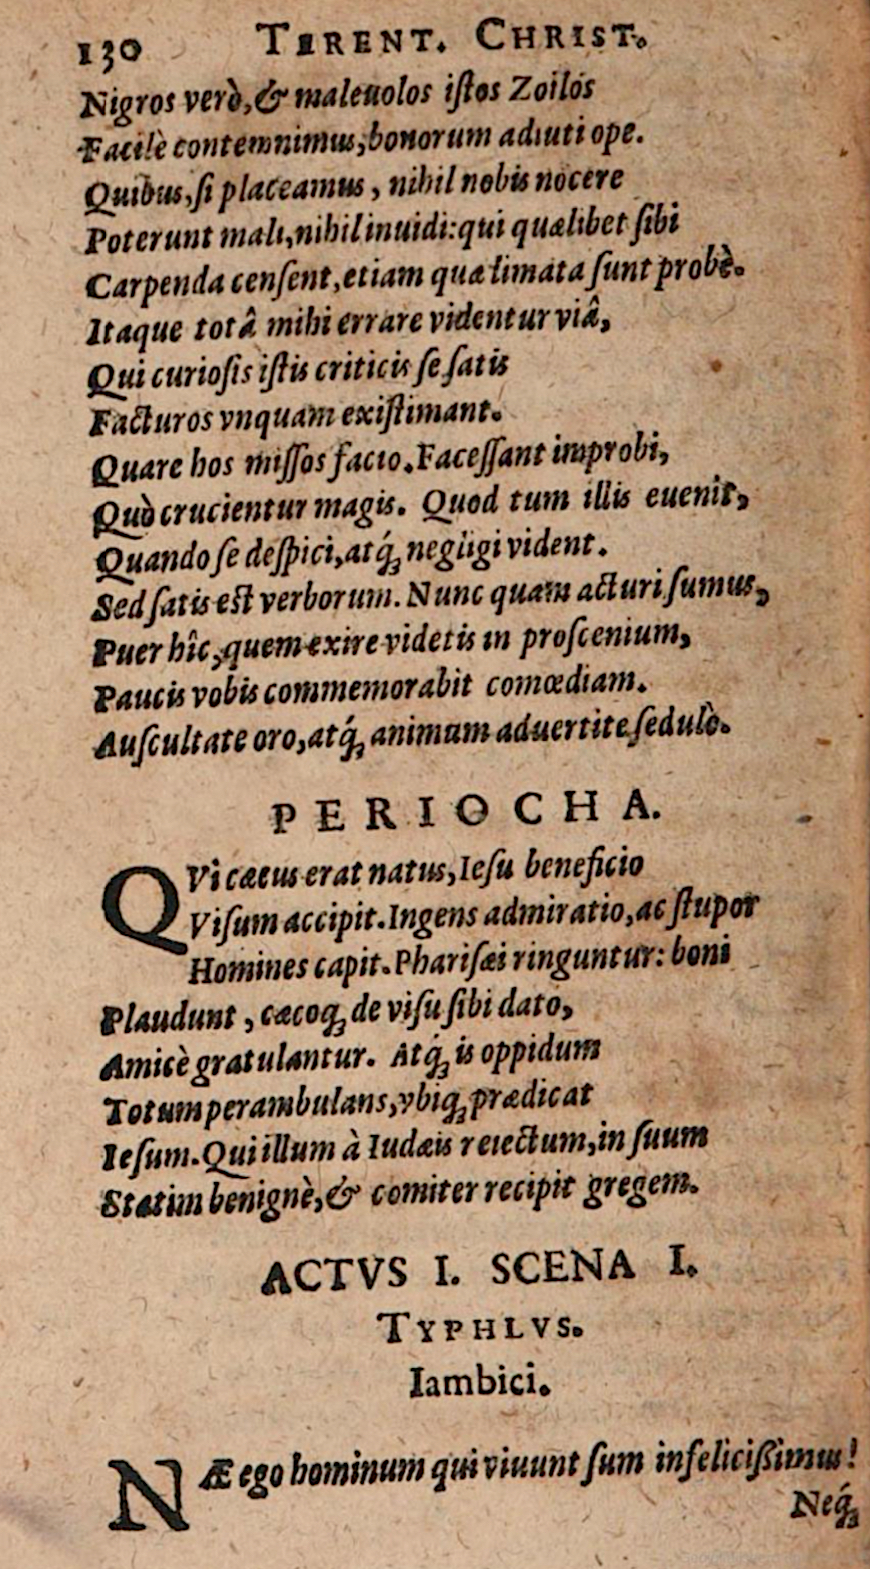 130 TERENT. CHRIST.
Nigros verò, & maleuolos iſtos Zoilos
Facilè contemnimus, bonorum adiuti ope.
Quibus, ſi placeamus, nihil nobis nocere
Poterunt mali, nihil inuidi: qui quælibet ſibi
Carpenda cenſent, etiam quæ limata ſunt probè.
Itaque totâ mihi errare videntur viâ,
Qui curioſis iſtis criticis ſe ſatis
Facturos vnquam exiſtimant.
Quare hos miſſos facio. Faceſſant improbi,
Quò crucientur magis. Quod tum illis euenit,
Quando ſe deſpici, atq́; negligi vident.
Sed ſatis est verborum. Nunc quam acturi ſumus,
Puer hîc, quem exire videtis in proſcenium,
Paucis vobis commemorabit comœdiam.
Auſcultate oro, atq́; animum aduertite ſedulò.
PERIOCHA.
QVi cæcus erat natus, Ieſu beneficio
Viſum accipit. Ingens admiratio, ac ſtupor
Homines capit. Phariſæi ringuntur: boni
Plaudunt, cæcoq; de viſu ſibi dato,
Amicè gratulantur. Atq́; is oppidum
Totum perambulans, vbiq; prædicat
Ieſum. Qui illum à Iudæis reiectum, in ſuum
Statim benignè, & comiter recipit gregem.
ACTVS I. SCENA I.
TYPHLVS.
Iambici.
NÆ ego hominum qui viuunt ſum infeliciſſimus!
Neq́;